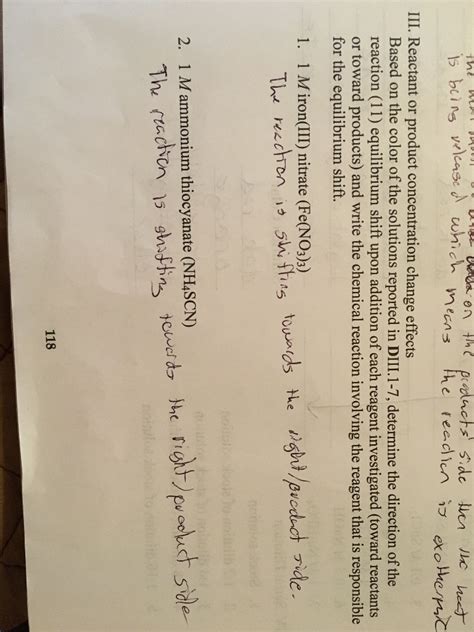 on the products side then the heat
is being released which means the reaction is exothermic
III. Reactant or product concentration change effects
Based on the color of the solutions reported in DIII.1-7, determine the direction of the
reaction (11) equilibrium shift upon addition of each reagent investigated (toward reactants
or toward products) and write the chemical reaction involving the reagent that is responsible
for the equilibrium shift.
1. 1 M iron(III) nitrate (Fe(NO3)3)
The reaction is shifting towards the right/product side.
2. 1 M ammonium thiocyanate (NH4SCN)
The reaction is shifting towards the right/product side
118